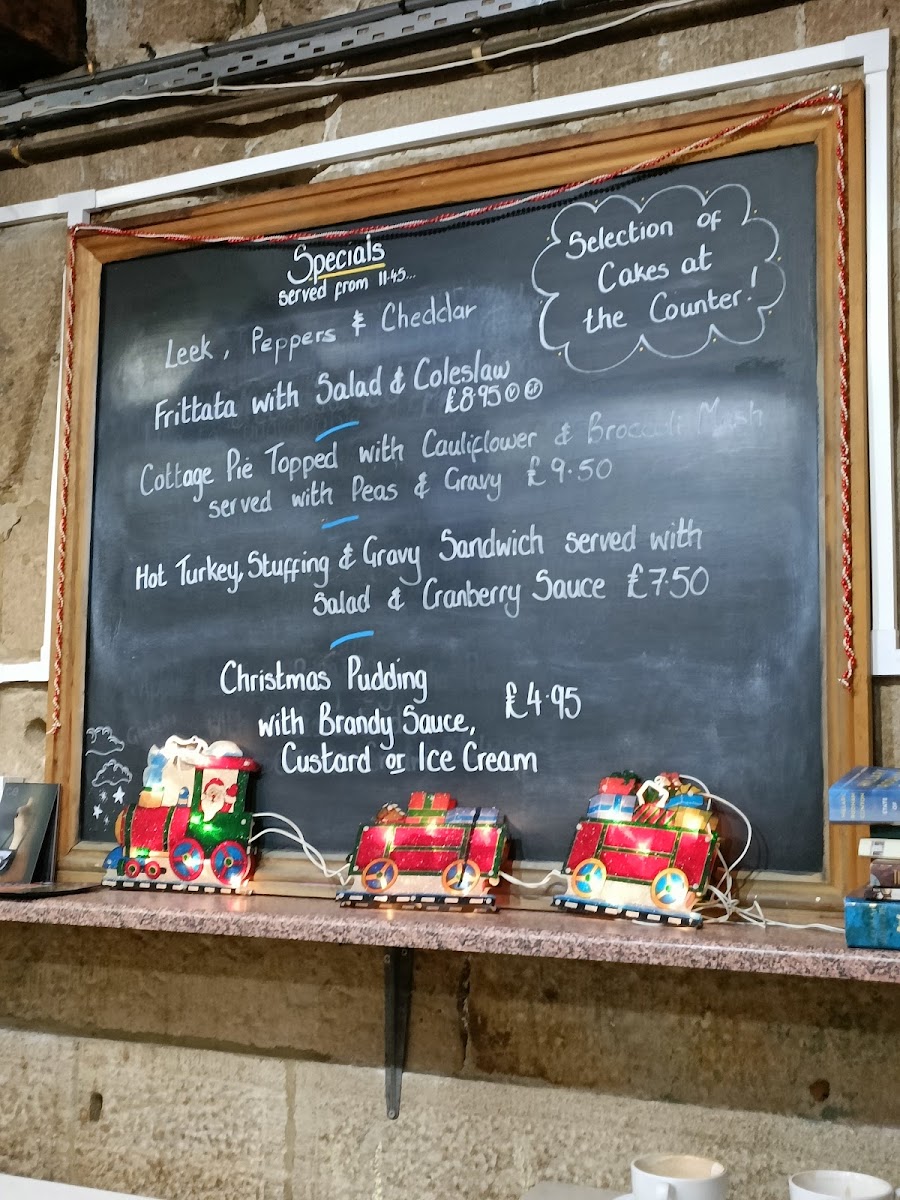 Specials
served from 11.45...
Selection of
Cakes at
the Counter!
Leek, Peppers & Cheddar
Frittata with Salad & Coleslaw
£8.95 Ⓥ
Cottage Pie Topped with Cauliflower & Broccoli Mash
served with Peas & Gravy £9.50
Hot Turkey, Stuffing & Gravy Sandwich served with
Salad & Cranberry Sauce £7.50
Christmas Pudding
£4.95
with Brandy Sauce,
Custard or Ice Cream